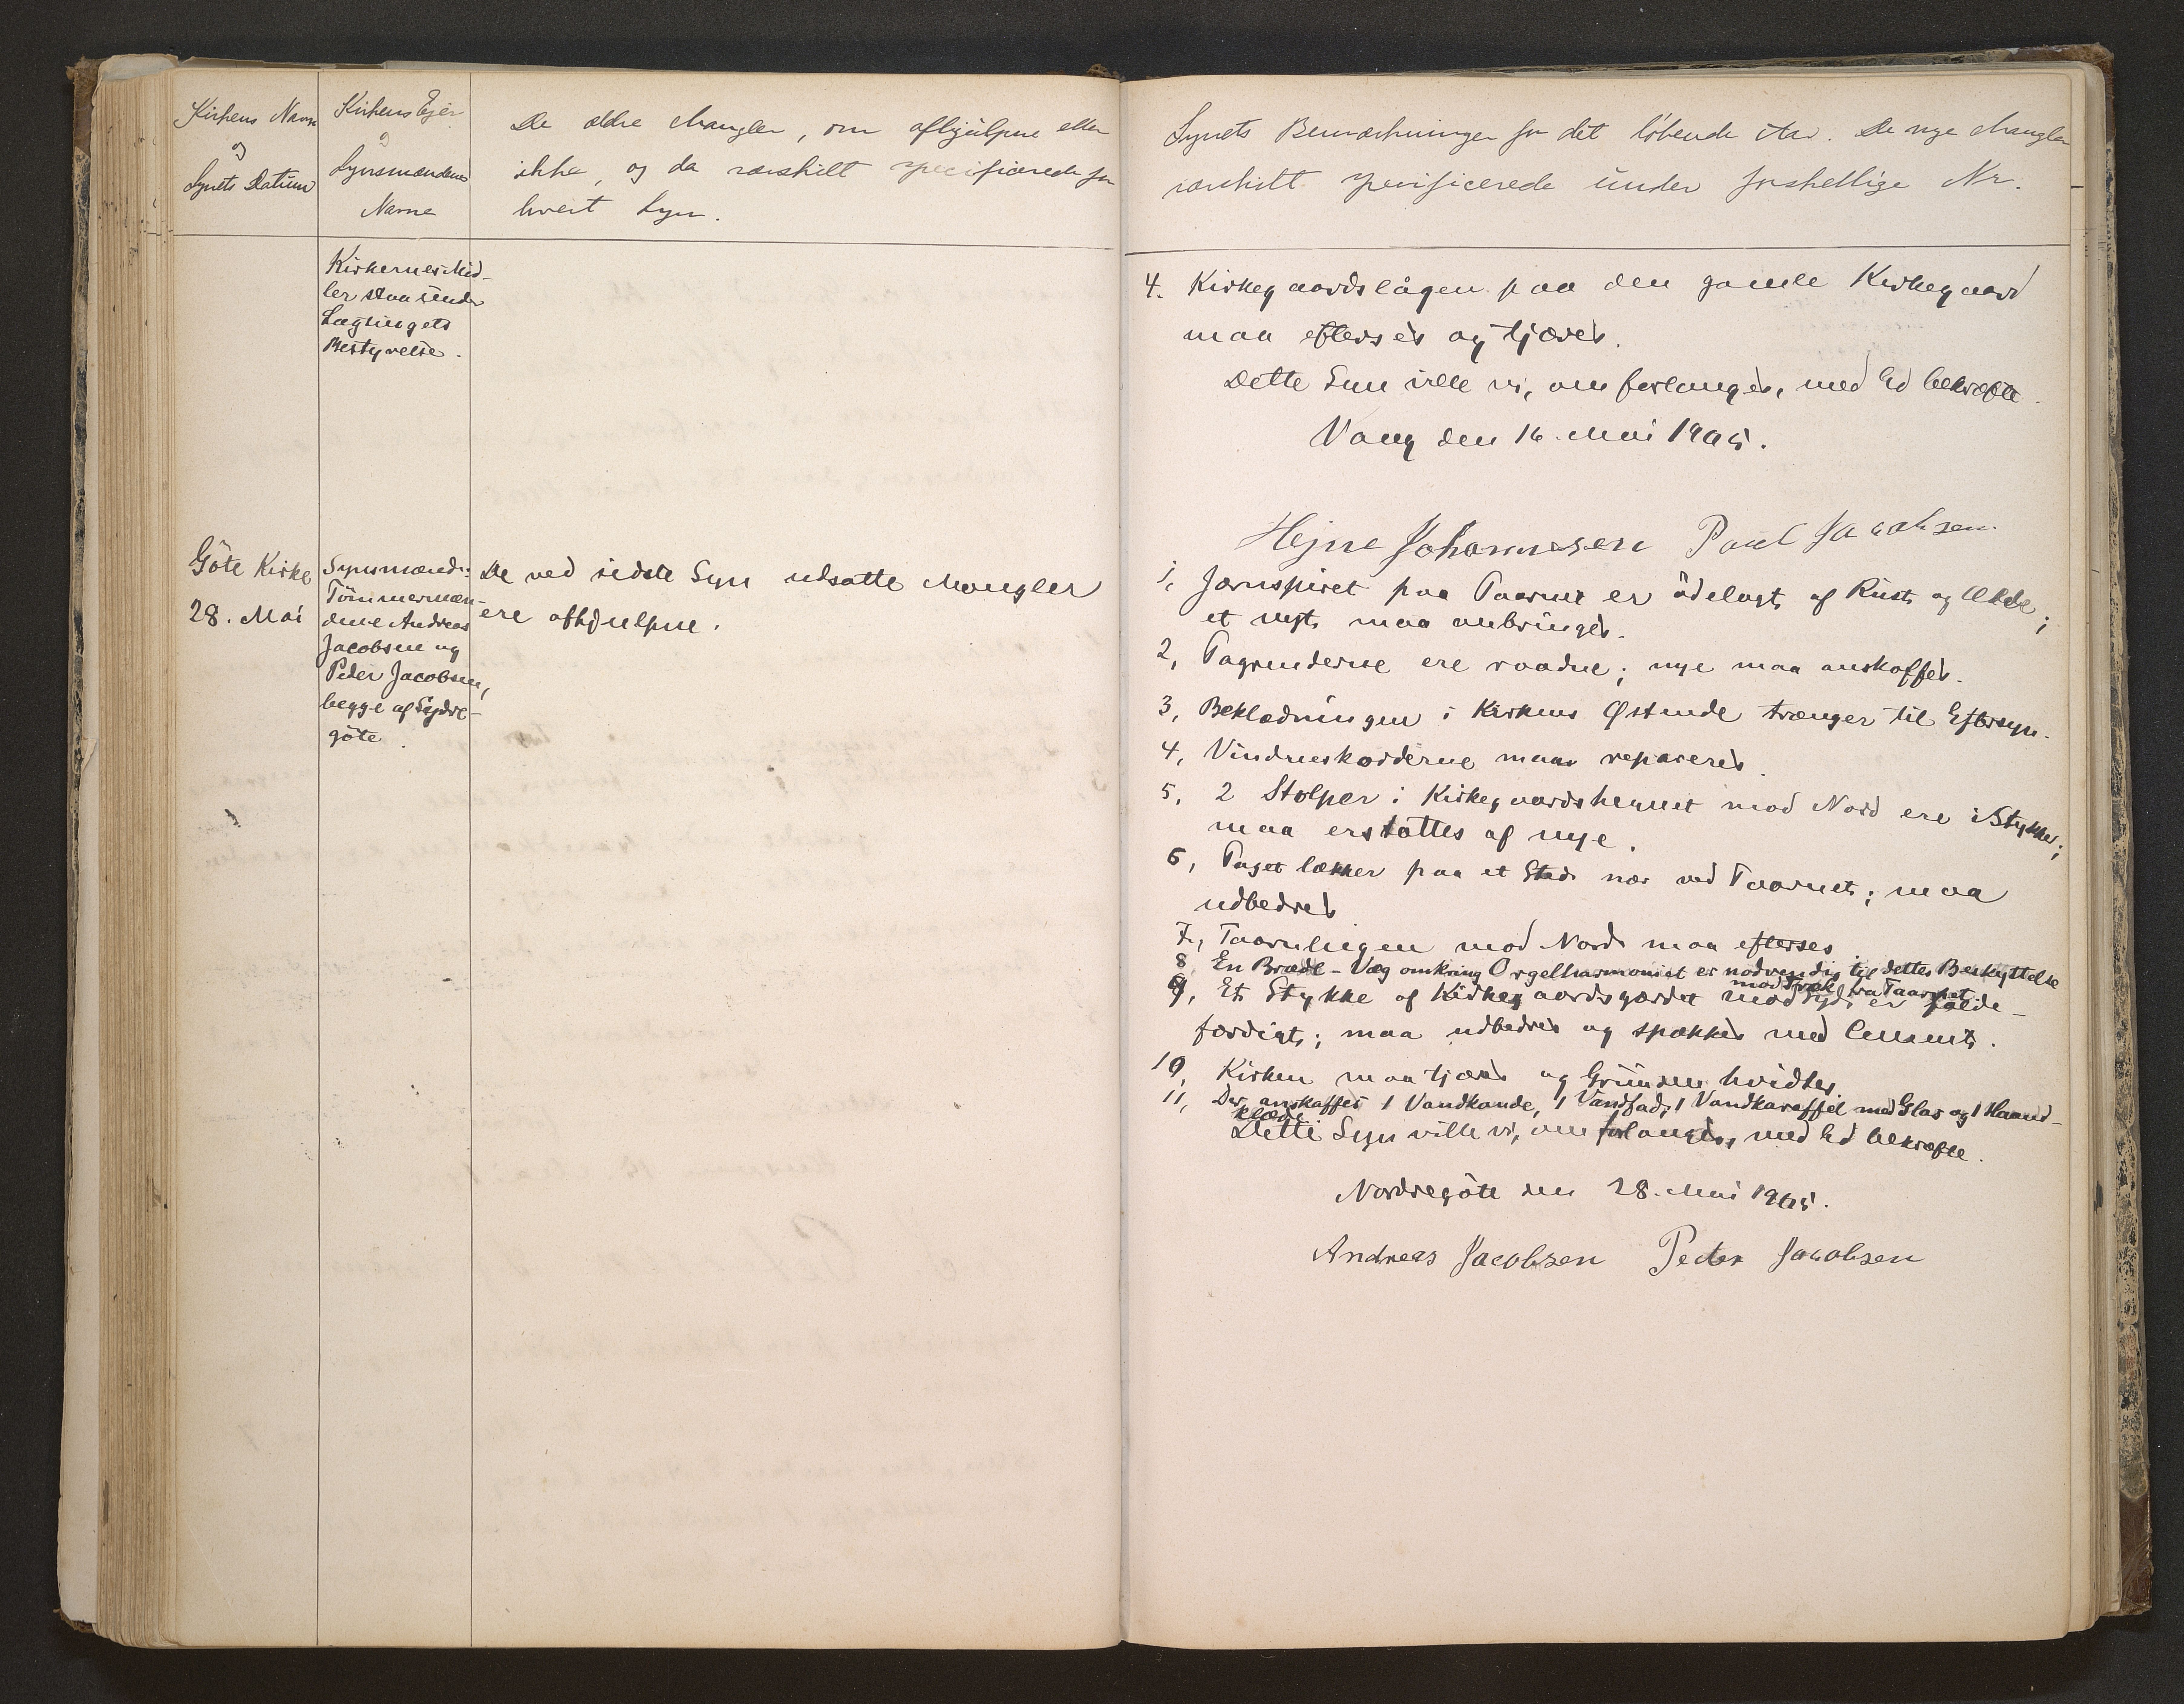 Kirkens Navn
og
Synets Datum
Kirkens Ejer
og
Synsmændenes
Navne
De ældre Mangler, om afhjulpne eller
ikke, og da særskilt specificerede for
hvert Syn.
Kirkernes Mid-
ler staa under
Lagtingets
Bestyrelse.
Göte Kirke
28. Mai
Synsmænd:
Tömmermæn-
dene Andreas
Jacobsen og
Peder Jacobsen,
begge af Sydre-
göte.
De ved sidste Syn udsatte Mangler
ere afhjulpne.
Synets Bemærkninger for det löbende Aar. De nye Mangler
særskilt specificerede under forskellige Nr.
4. Kirkegaardslågen paa den gamle Kirkegaard
maa efterses og tjæres.
Dette Syn ville vi, om forlanges, med Ed bekræfte.
Vaag den 16. Mai 1905.
Hejne Johannesen Poul Jacobsen
1, Jærnspiret paa Taarnet er ödelagt af Rust og Ælde;
et nyt maa anbringes.
2, Tagrenderne ere raadne; nye maa anskaffes.
3, Beklædningen i Kirkens Østende trænger til Eftersyn.
4, Vindueskodderne maa repareres.
5, 2 Stolper i Kirkegaardshegnet mod Nord ere i Stykker;
maa erstattes af nye.
6, Taget lækker paa et Sted nær ved Taarnet; maa
udbedres
7, Taarnlugen mod Nord maa efterses.
8 En Brædde-Væg omkring Orgelharmoniet er nødvendig til dettes Beskyttelse
mod Træk fra Taarnet.
9, Et Stykke af Kirkegaardsgærdet mod Syd er falde-
færdigt; maa udbedres og spækkes med Cement.
10, Kirken maa tjæres og Grunden hvidtes.
11, Der anskaffes 1 Vandkande, 1 Vandfad, 1 Vandkaraffel med Glas og 1 Haand-
klæde
Dette Syn ville vi, om forlanges, med Ed bekræfte.
Nordregöte den 28. Mai 1905.
Andreas Jacobsen Peder Jacobsen